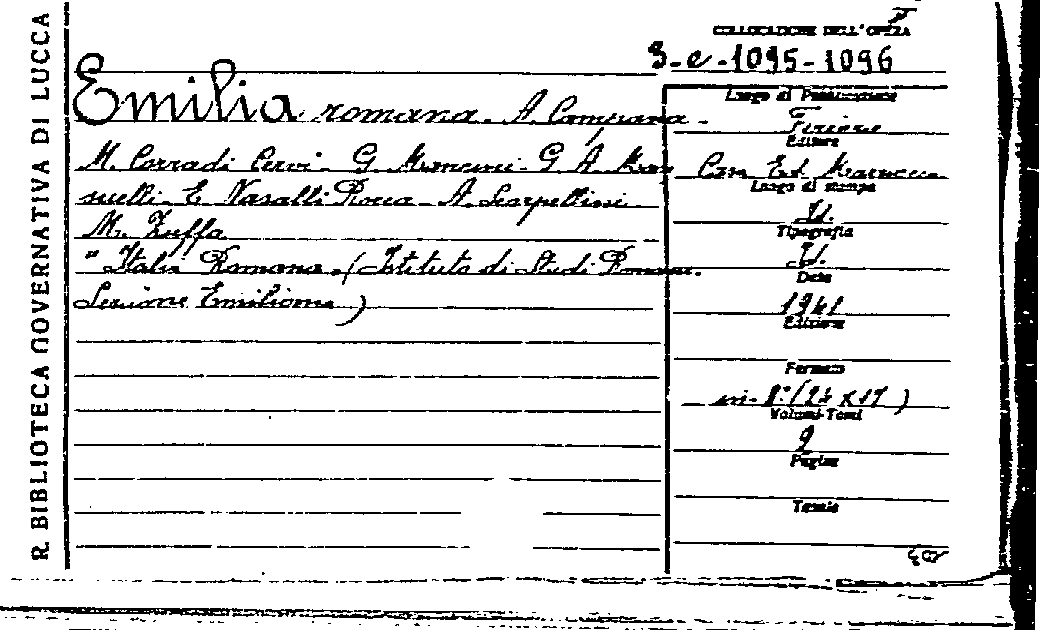 R. BIBLIOTECA GOVERNATIVA DI LUCCA
COLLOCAZIONE DELL'OPERA
3-e-1095-1096
Emilia romana. A. Campana-
M. Corradi Cervi- G. Mancini- G. A. Man
suelli- E. Nasalli Rocca- A. Scarpellini
M. Zuffa
"Italia Romana. (Istituto di Studi Romani.
Sezione Emiliana)
Luogo di Pubblicazione
Firenze
Editore
Cas. Ed. Marzocco
Luogo di stampa
Id.
Tipografia
Id.
Data
1941
Edizione
Formato
in- 8° (24 x 17)
Volumi-Tomi
2
Pagine
Tavole